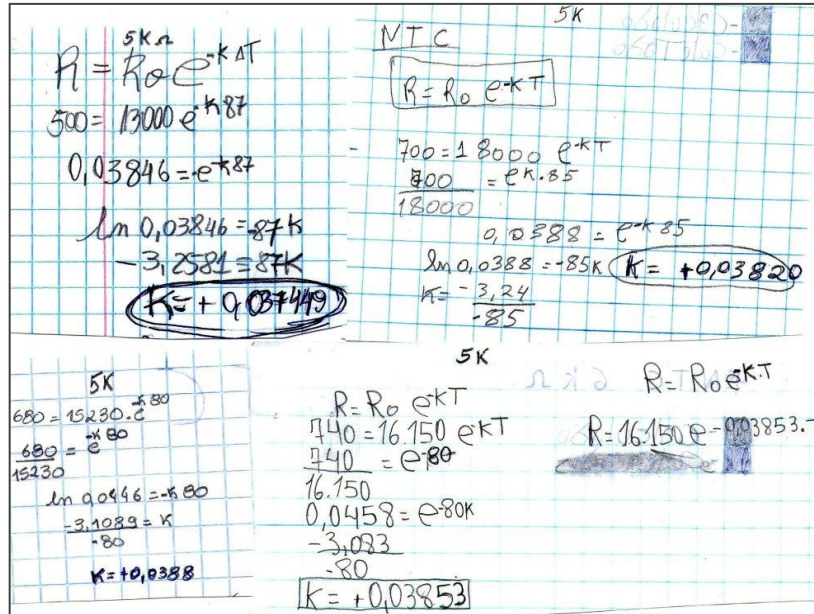 5KΩ
R = Ro e^-KΔT
500 = 13000 e^-K87
0,03846 = -e^-K87
ln 0,03846 = -87K
- 3,2581 = 87K
K = + 0,037449
5K
NTC
R = Ro e^-KT
700 = 18000 e^-KT
700 = e^K.85
18000
0,0388 = e^-K 85
ln 0,0388 = -85K K = +0,03820
K = - 3,24
-85
5K
680 = 15230. e^-K 80
680 = e^-K 80
15230
ln 0,0446 = -K 80
-3,1089 = K
-80
K = +0,0388
5K
R = Ro e^-KT
740 = 16.150 e^-KT
740 = e^-80
16.150
0,0458 = e^-80K
-3,083
-80
K = +0,03853
R = Ro e^-K.T
R = 16.150 e^-0,03853.